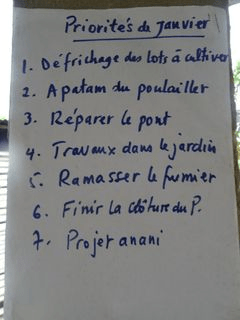 Priorités de janvier
1. Défrichage des lots à cultiver
2. Apatam du poulailler
3. Réparer le pont
4. Travaux dans le jardin
5. Ramasser le fumier
6. Finir la clôture du P.
7. Projet anani